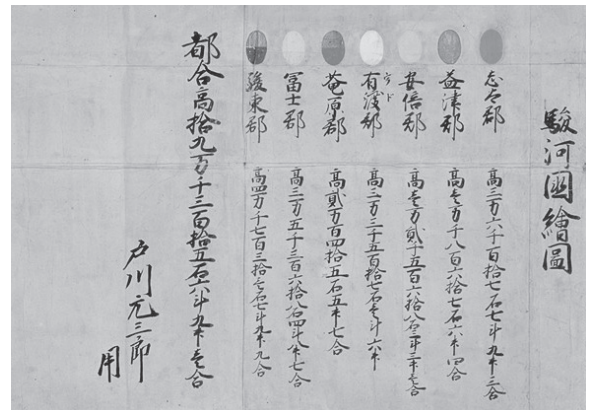 駿河國繪圖
志太郡 高三万六千百拾七石七斗九升三合
益津郡 高壱万千八百六拾七石六升四合
安倍郡 高壱万貳千五百六拾八石三斗三升壱合
有渡郡 高三万三千五百拾七石壱斗六升
ウド
菴原郡 高貳万百四拾五石五升七合
冨士郡 高三万五千三百六拾八石四斗 七合
駿東郡 高四万千七百三拾壱石七斗九升九合
都合高拾九万千三百拾五石六斗九升壱合
戸川元三郎
用